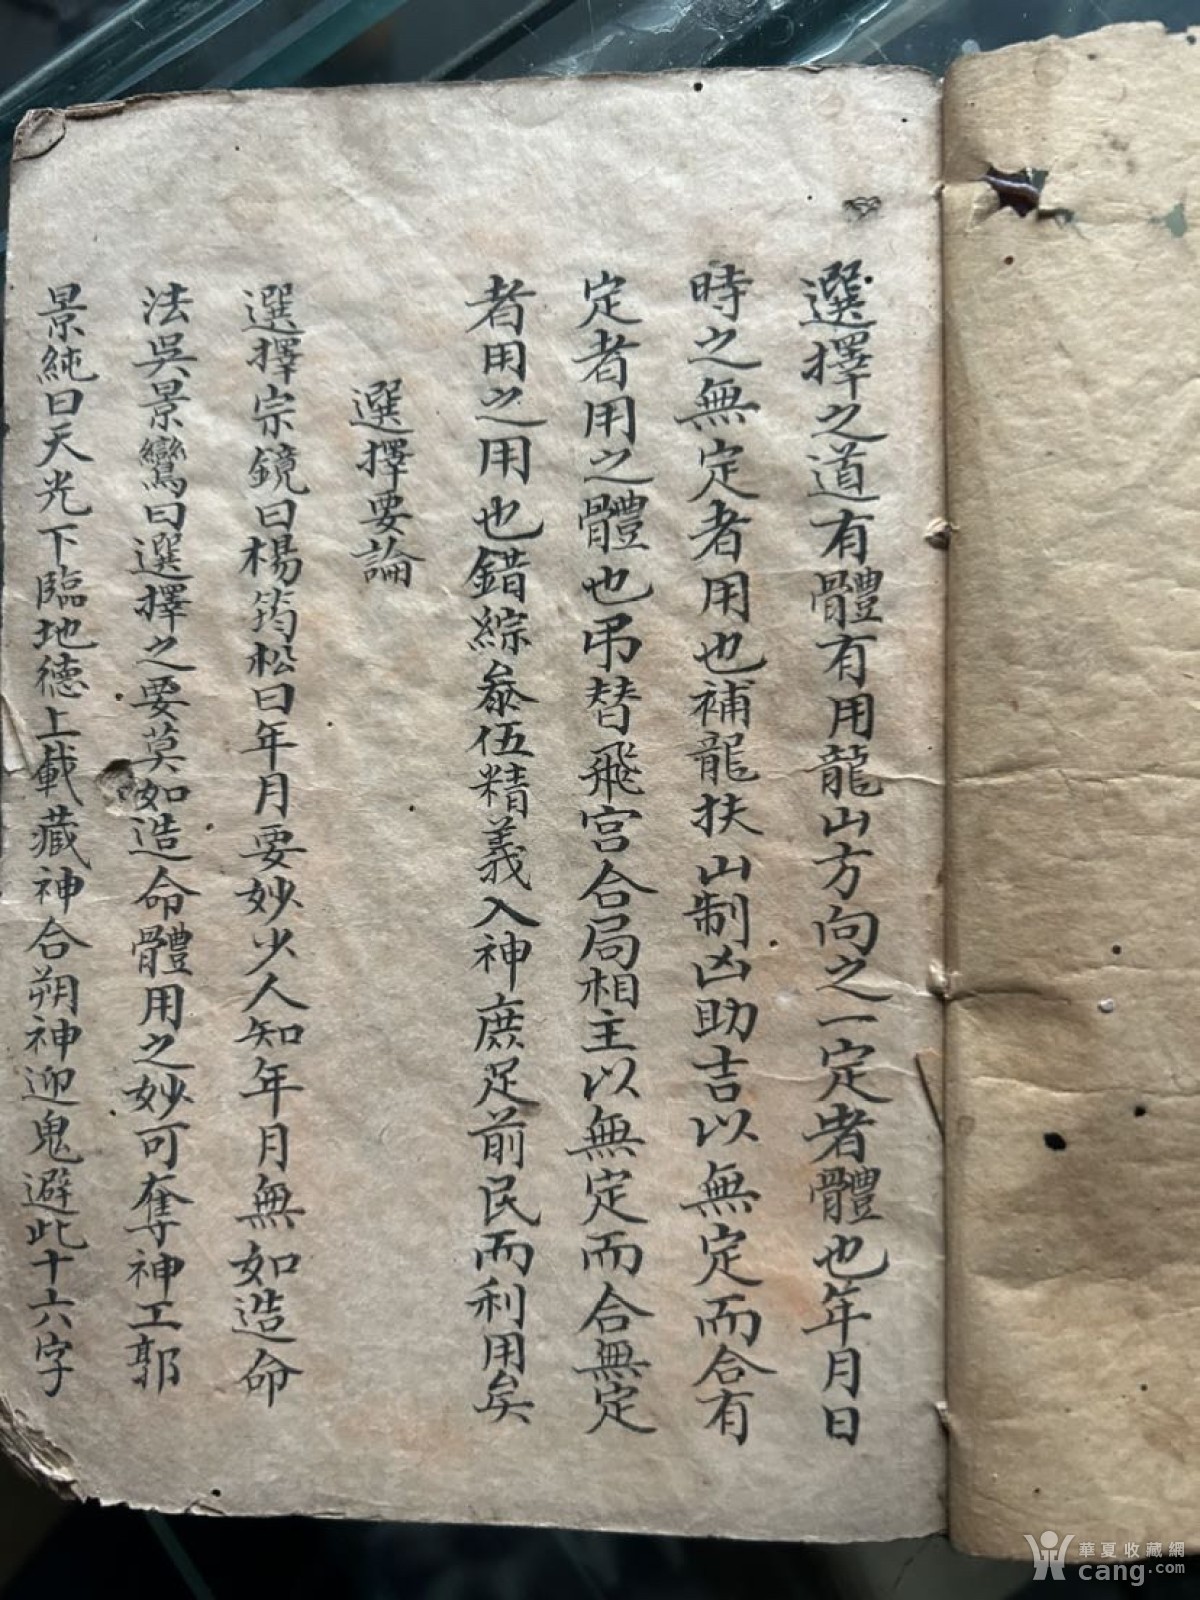 選擇之道有體有用龍山方向之一定者體也年月日
時之無定者用也補龍扶山制凶助吉以無定而合有
定者用之體也弔替飛宮合局相主以無定而合無定
者用之用也錯綜叅伍精義入神庶足前民而利用矣
選擇要論
選擇宗鏡曰楊筠松曰年月要妙少人知年月無如造命
法吳景鸞曰選擇之要莫如造命體用之妙可奪神工郭
景純曰天光下臨地德上載藏神合朔神迎鬼避此十六字
華夏收藏網
cang.com